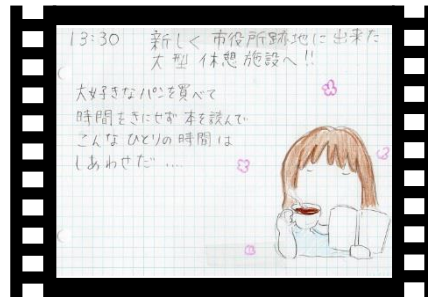 13:30 新しく市役所跡地に出来た
大型休憩施設へ!!
大好きなパンを買べて
時間をきにせず本を読んで
こんなひとりの時間は
しあわせだ...